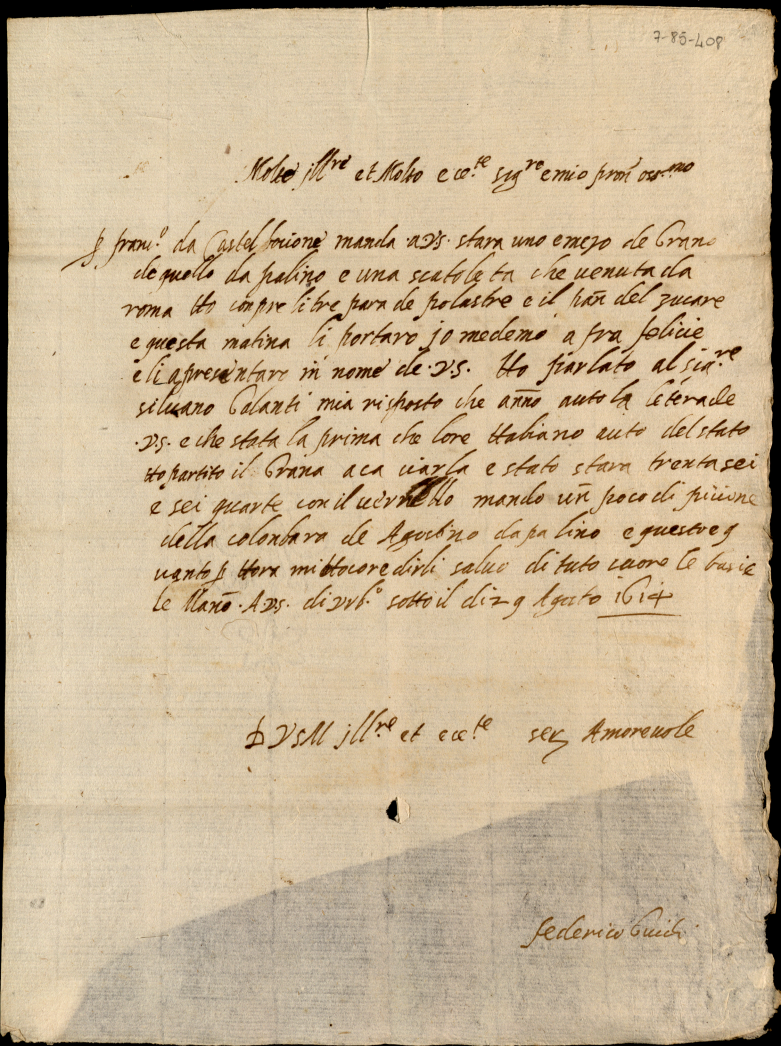 7-85-408
Molto jll.re et Molto ecc.te sig.re e mio pron oss.mo
p franc.o da Castel manda a VS. stara uno emezo de Grano
de quello da palino e una scatoleta che venuta da
roma Ho conpre li tre para de polastre e il pan del zucare
e questa matina li portaro jo medemo a fra felicie
e li apresentaro in nome de .VS. Ho parlato al sig.re
silvano Galanti mia risposto che anno auto la letera de
.VS. e che stata la prima che lore Habiano auto del stato
Ho partito il Grana a ca e stato stara trentasei
e sei quarte con il mando un poco di picione
della colonbara de Agostino da palino e questo e q
uanto p Hora mi dirli salvo di tuto cuore le bacie
le Mano .A VS. di Urb.o sotto il di 29 Agosto 1614
D VS M jll.re et ecc.te ser Amorevole
federico Guidi